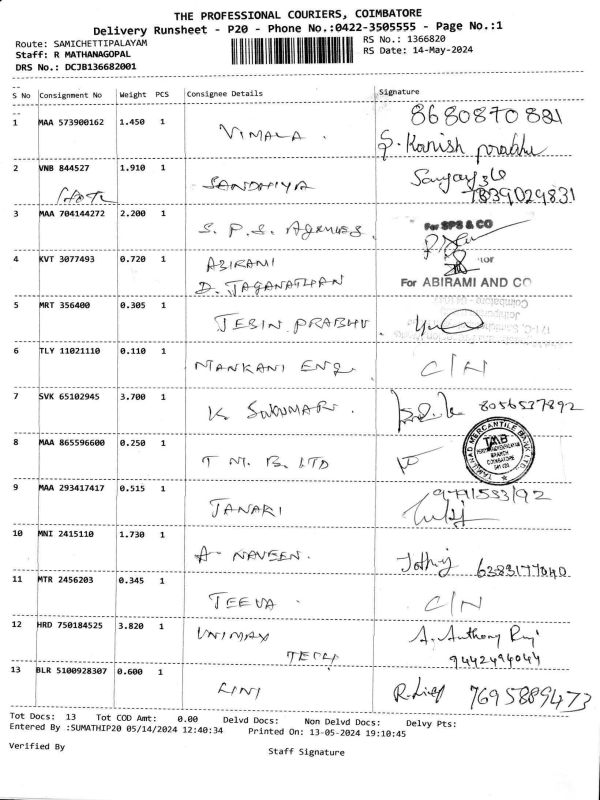 THE PROFESSIONAL COURIERS, COIMBATORE
Delivery Runsheet - P20 - Phone No.:0422-3505555 - Page No.:1
Route: SAMICHETTIPALAYAM
RS No.: 1366820
Staff: R MATHANAGOPAL
RS Date: 14-May-2024
DRS No.: DCJB136682001
S No Consignment No Weight PCS Consignee Details Signature
1 MAA 573900162 1.450 1 VIMALA. 8680870881
S. Kanish prabhu
2 VNB 844527 1.910 1 SANDHIYA Sanjay
7339029831
3 MAA 704144272 2.200 1 S. P. S. Agencies For SPS & CO
4 KVT 3077493 0.720 1 ABIRAMI
D. JAGANATHAN For ABIRAMI AND CO
5 MRT 356400 0.305 1 JEBIN PRABHU
6 TLY 11021110 0.110 1 MANKANI ENG. C/N
7 SVK 65102945 3.700 1 K. SUKUMAR. 8056537892
8 MAA 865596600 0.250 1 T M. B. LTD TAMILNAD MERCANTILE BANK LTD.
TMB
BRANCH
COIMBATORE
9 MAA 293417417 0.515 1 JANAKI
10 MNI 2415110 1.730 1 A- NAVEEN. Jothi 6383177040
11 MTR 2456203 0.345 1 JEEVA C/N
12 HRD 750184525 3.820 1 UNIMAX
TECH A. Anthony Raj
9442494044
13 BLR 5100928307 0.600 1 LINI 7695889473
Tot Docs: 13 Tot COD Amt: 0.00 Delvd Docs: Non Delvd Docs: Delvy Pts:
Entered By :SUMATHIP20 05/14/2024 12:40:34 Printed On: 13-05-2024 19:10:45
Verified By
Staff Signature